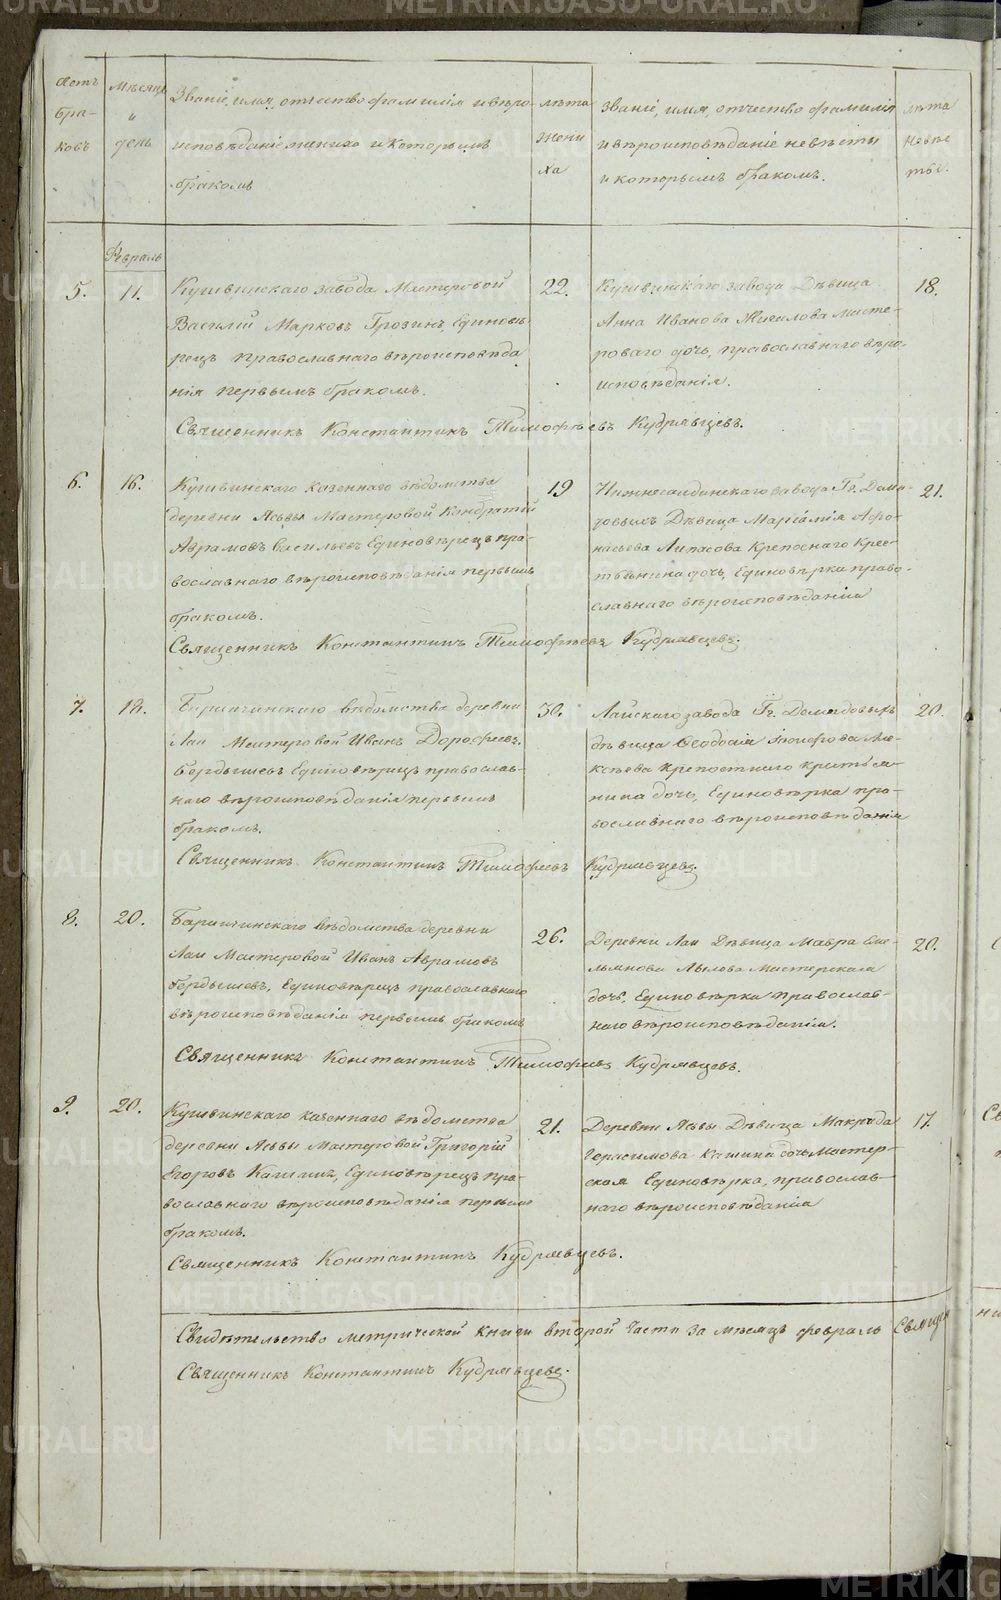 METRIKI.GASO-URAL.RU
Счетъ браковъ
Мѣсяцъ и день
Званіе, имя, отчество фамилія и вѣроисповѣданіе жениха и которымъ бракомъ
лѣта жениха
Званіе, имя, отчество фамилія и вѣроисповѣданіе невѣсты и которымъ бракомъ.
лѣта невѣсты.
Февраль
5. 11.
Кушвинскаго завода Мастеровой
Василій Марковъ Грозинъ, Единовѣ-
рецъ православнаго вѣроисповѣда
нія первымъ бракомъ.
22.
Кушвинскаго завода Дѣвица
Анна Иванова Жигалова масте-
роваго дочь, православнаго вѣро
исповѣданія.
18.
Священникъ Константинъ Тимофѣевъ Кудрявцевъ.
6. 16.
Кушвинскаго казеннаго вѣдомства
деревни Асьвы Мастеровой Кондратій
Аврамовъ Васильевъ Единовѣрецъ пра-
вославнаго вѣроисповѣданія первымъ
бракомъ.
19
Нижнесалдинскаго завода Гг. Деми-
довыхъ Дѣвица Афо-
насьева Крепоснаго Крес-
тьянина дочь, Единовѣрка право-
славнаго вѣроисповѣданія
21.
Священникъ Константинъ Тимофѣевъ Кудрявцевъ.
7. 18.
Баранчинскаго вѣдомства деревни
Лаи Мастеровой Иванъ Дорофеевъ
Бердышевъ Единовѣрецъ православ-
наго вѣроисповѣданія первымъ
бракомъ.
30.
Лайскаго завода Гг. Демидовыхъ
дѣвица Ѳеодосія Але-
ксѣева Крепостнаго крестьян-
нина дочь, Единовѣрка пра-
вославнаго вѣроисповѣданія
20.
Священникъ Константинъ Тимофеевъ Кудрявцевъ
8. 20.
Баранчинскаго вѣдомства деревни
Лаи Мастеровой Иванъ Аврамовъ
Бердышевъ, Единовѣрецъ православнаго
вѣроисповѣданія первымъ бракомъ
26.
Деревни Лаи Дѣвица Мавра Еме-
льянова Мастерская
дочь, Единовѣрка православ-
наго вѣроисповѣданія.
20.
Священникъ Константинъ Тимофеевъ Кудрявцевъ.
9. 20.
Кушвинскаго казеннаго вѣдомства
деревни Асьвы Мастеровой Григорій
Егоровъ Единовѣрецъ пра-
вославнаго вѣроисповѣданія первымъ
бракомъ.
21.
Деревни Асьвы Дѣвица Макрида
Герасимова Кашина дочь мастер-
ская Единовѣрка, православ-
наго вѣроисповѣданія
17.
Священникъ Константинъ Кудрявцевъ.
Свидѣтельство метрической книги второй части за мѣсяцъ февраль
Священникъ Константинъ Кудрявцевъ.